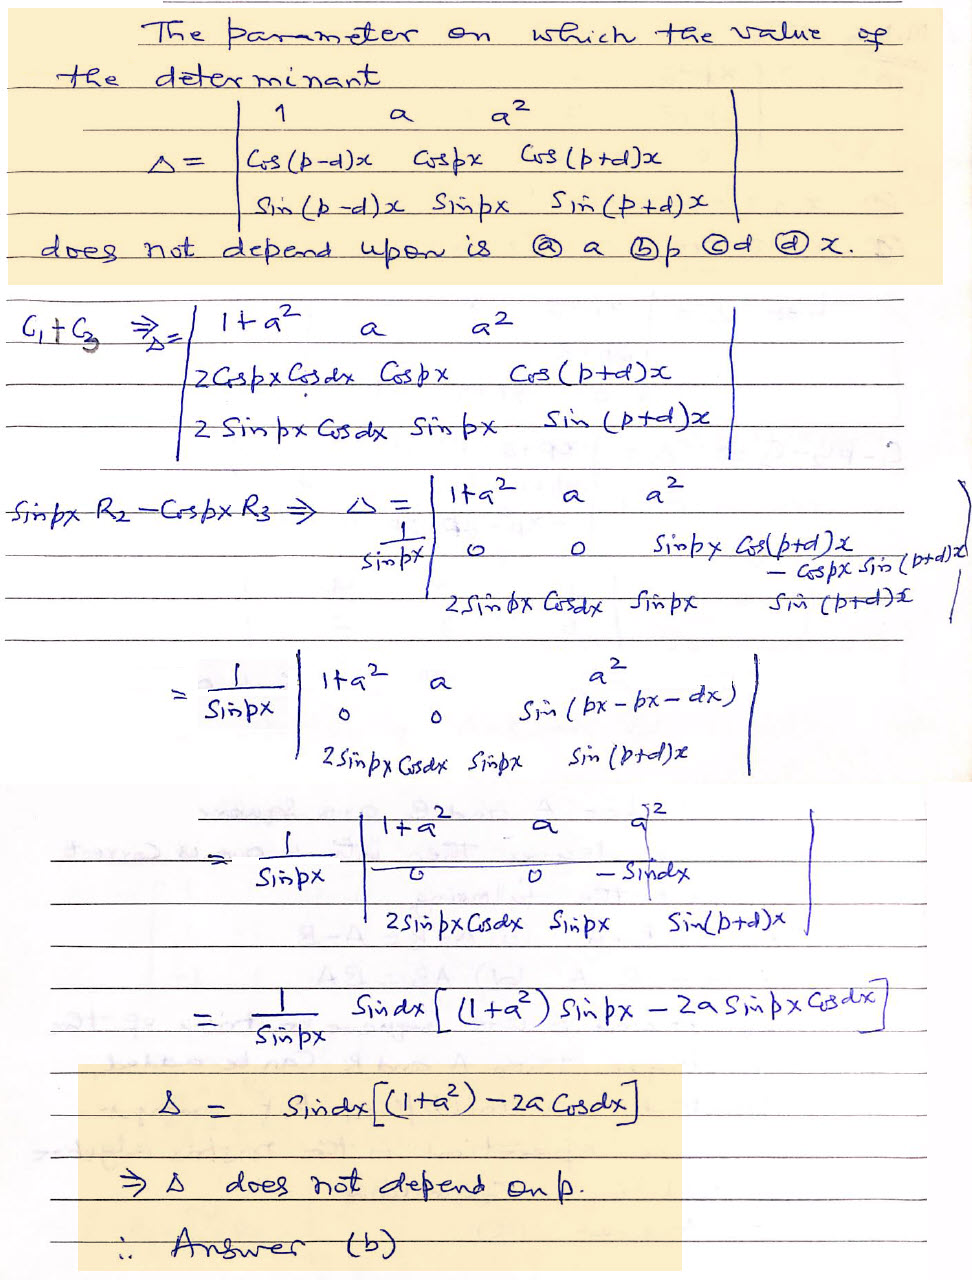 The parameter on which the value of
the determinant
1 a a²
Δ = Cos(p-d)x Cospx Cos(p+d)x
Sin(p-d)x Sinpx Sin(p+d)x
does not depend upon is ⓐ a ⓑ p ⓒ d ⓓ x.
C₁+C₃ ⇒ Δ= 1+a² a a²
2CospxCosdx Cospx Cos(p+d)x
2 Sinpx Cosdx Sinpx Sin(p+d)x
Sinpx R₂ - Cospx R₃ ⇒ Δ = 1+a² a a²
1/Sinpx 0 0 Sinpx Cos(p+d)x
- Cospx Sin(p+d)x
2Sinpx Cosdx Sinpx Sin(p+d)x
= 1/Sinpx 1+a² a a²
0 0 Sin(px-px-dx)
2SinpxCosdx Sinpx Sin(p+d)x
= 1/Sinpx 1+a² a a²
0 0 -Sindx
2SinpxCosdx Sinpx Sin(p+d)x
= 1/Sinpx Sindx[(1+a²)Sinpx - 2aSinpxCosdx]
Δ = Sindx[(1+a²)-2aCosdx]
⇒ Δ does not depend on p.
∴ Answer (b)